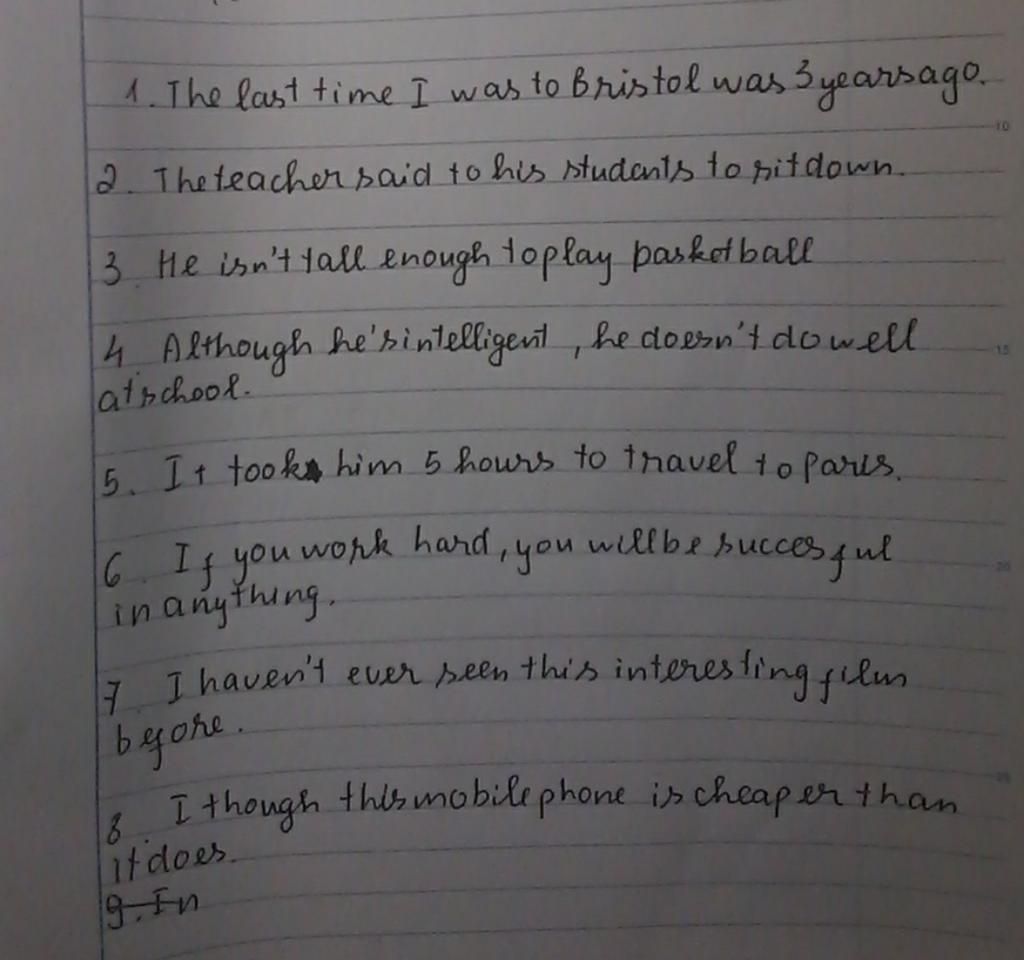 1. The last time I was to Bristol was 3 years ago.
10
2. The teacher said to his students to sit down.
3. He isn't tall enough to play basketball
4. Although he's intelligent, he doesn't do well
15
at school.
5. It took him 5 hours to travel to paris.
6. If you work hard, you will be succesful
20
in anything.
7. I haven't ever seen this interesting film
before.
25
8. I though this mobile phone is cheaper than
it does.
9. In